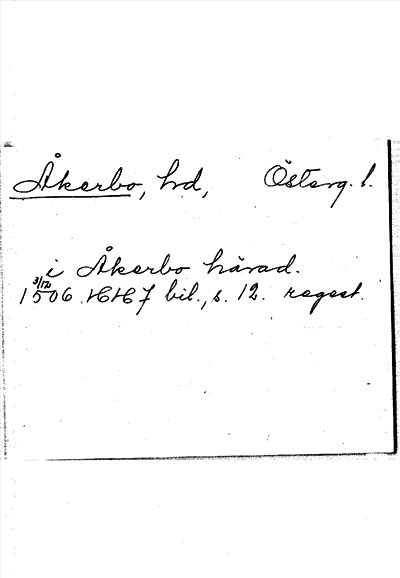 Åkerbo, hd, Österg. l.
i Åkerbo härad.
3/12
1506 HH 7 bil., s. 12. regest.